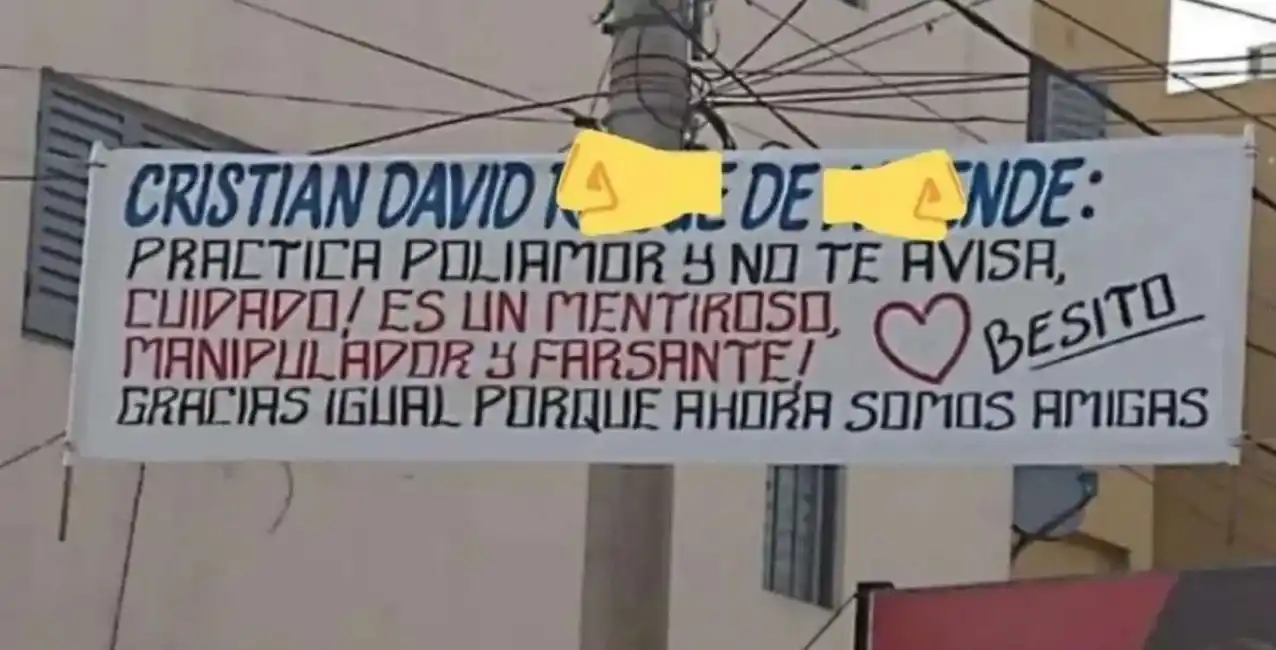 CRISTIAN DAVID DE
PRACTICA POLIAMOR Y NO TE AVISA,
CUIDADO! ES UN MENTIROSO,
MANIPULADOR Y FARSANTE!
BESITO
GRACIAS IGUAL PORQUE AHORA SOMOS AMIGAS